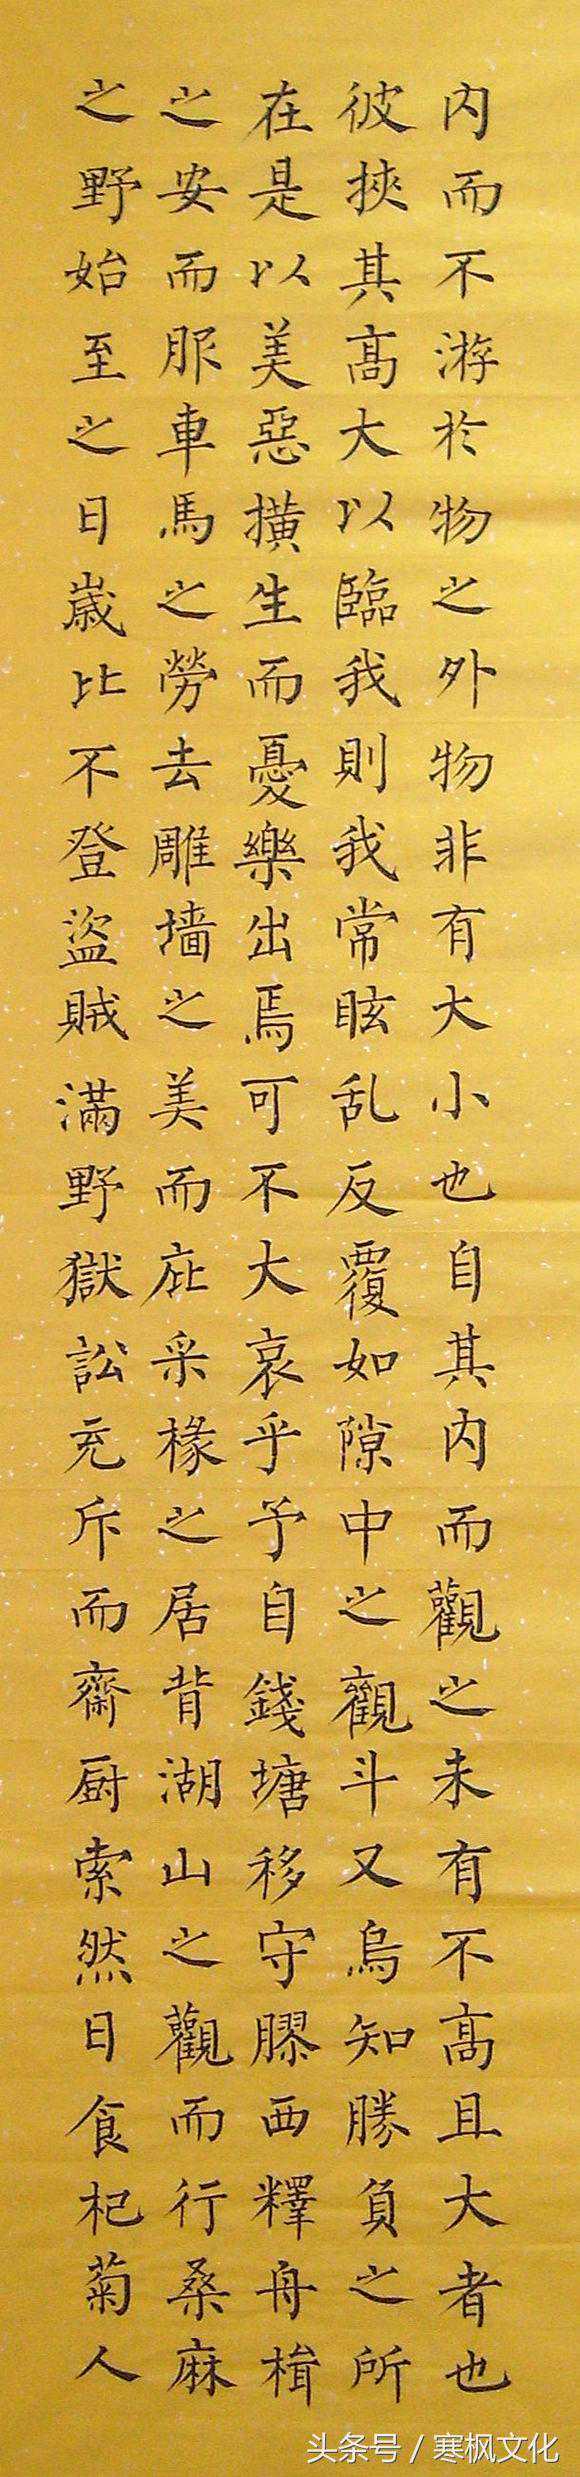 内而不游於物之外物非有大小也自其内而觀之未有不高且大者也
彼挾其高大以臨我則我常眩乱反覆如隙中之觀斗又烏知勝負之所
在是以美惡撗生而憂樂出焉可不大哀乎予自錢塘移守膠西釋舟楫
之安而服車馬之勞去雕墙之美而庇采椽之居背湖山之觀而行桑麻
之野始至之日歲比不登盜賊滿野獄訟充斥而齋厨索然日食杞菊人
头条号 / 寒枫文化